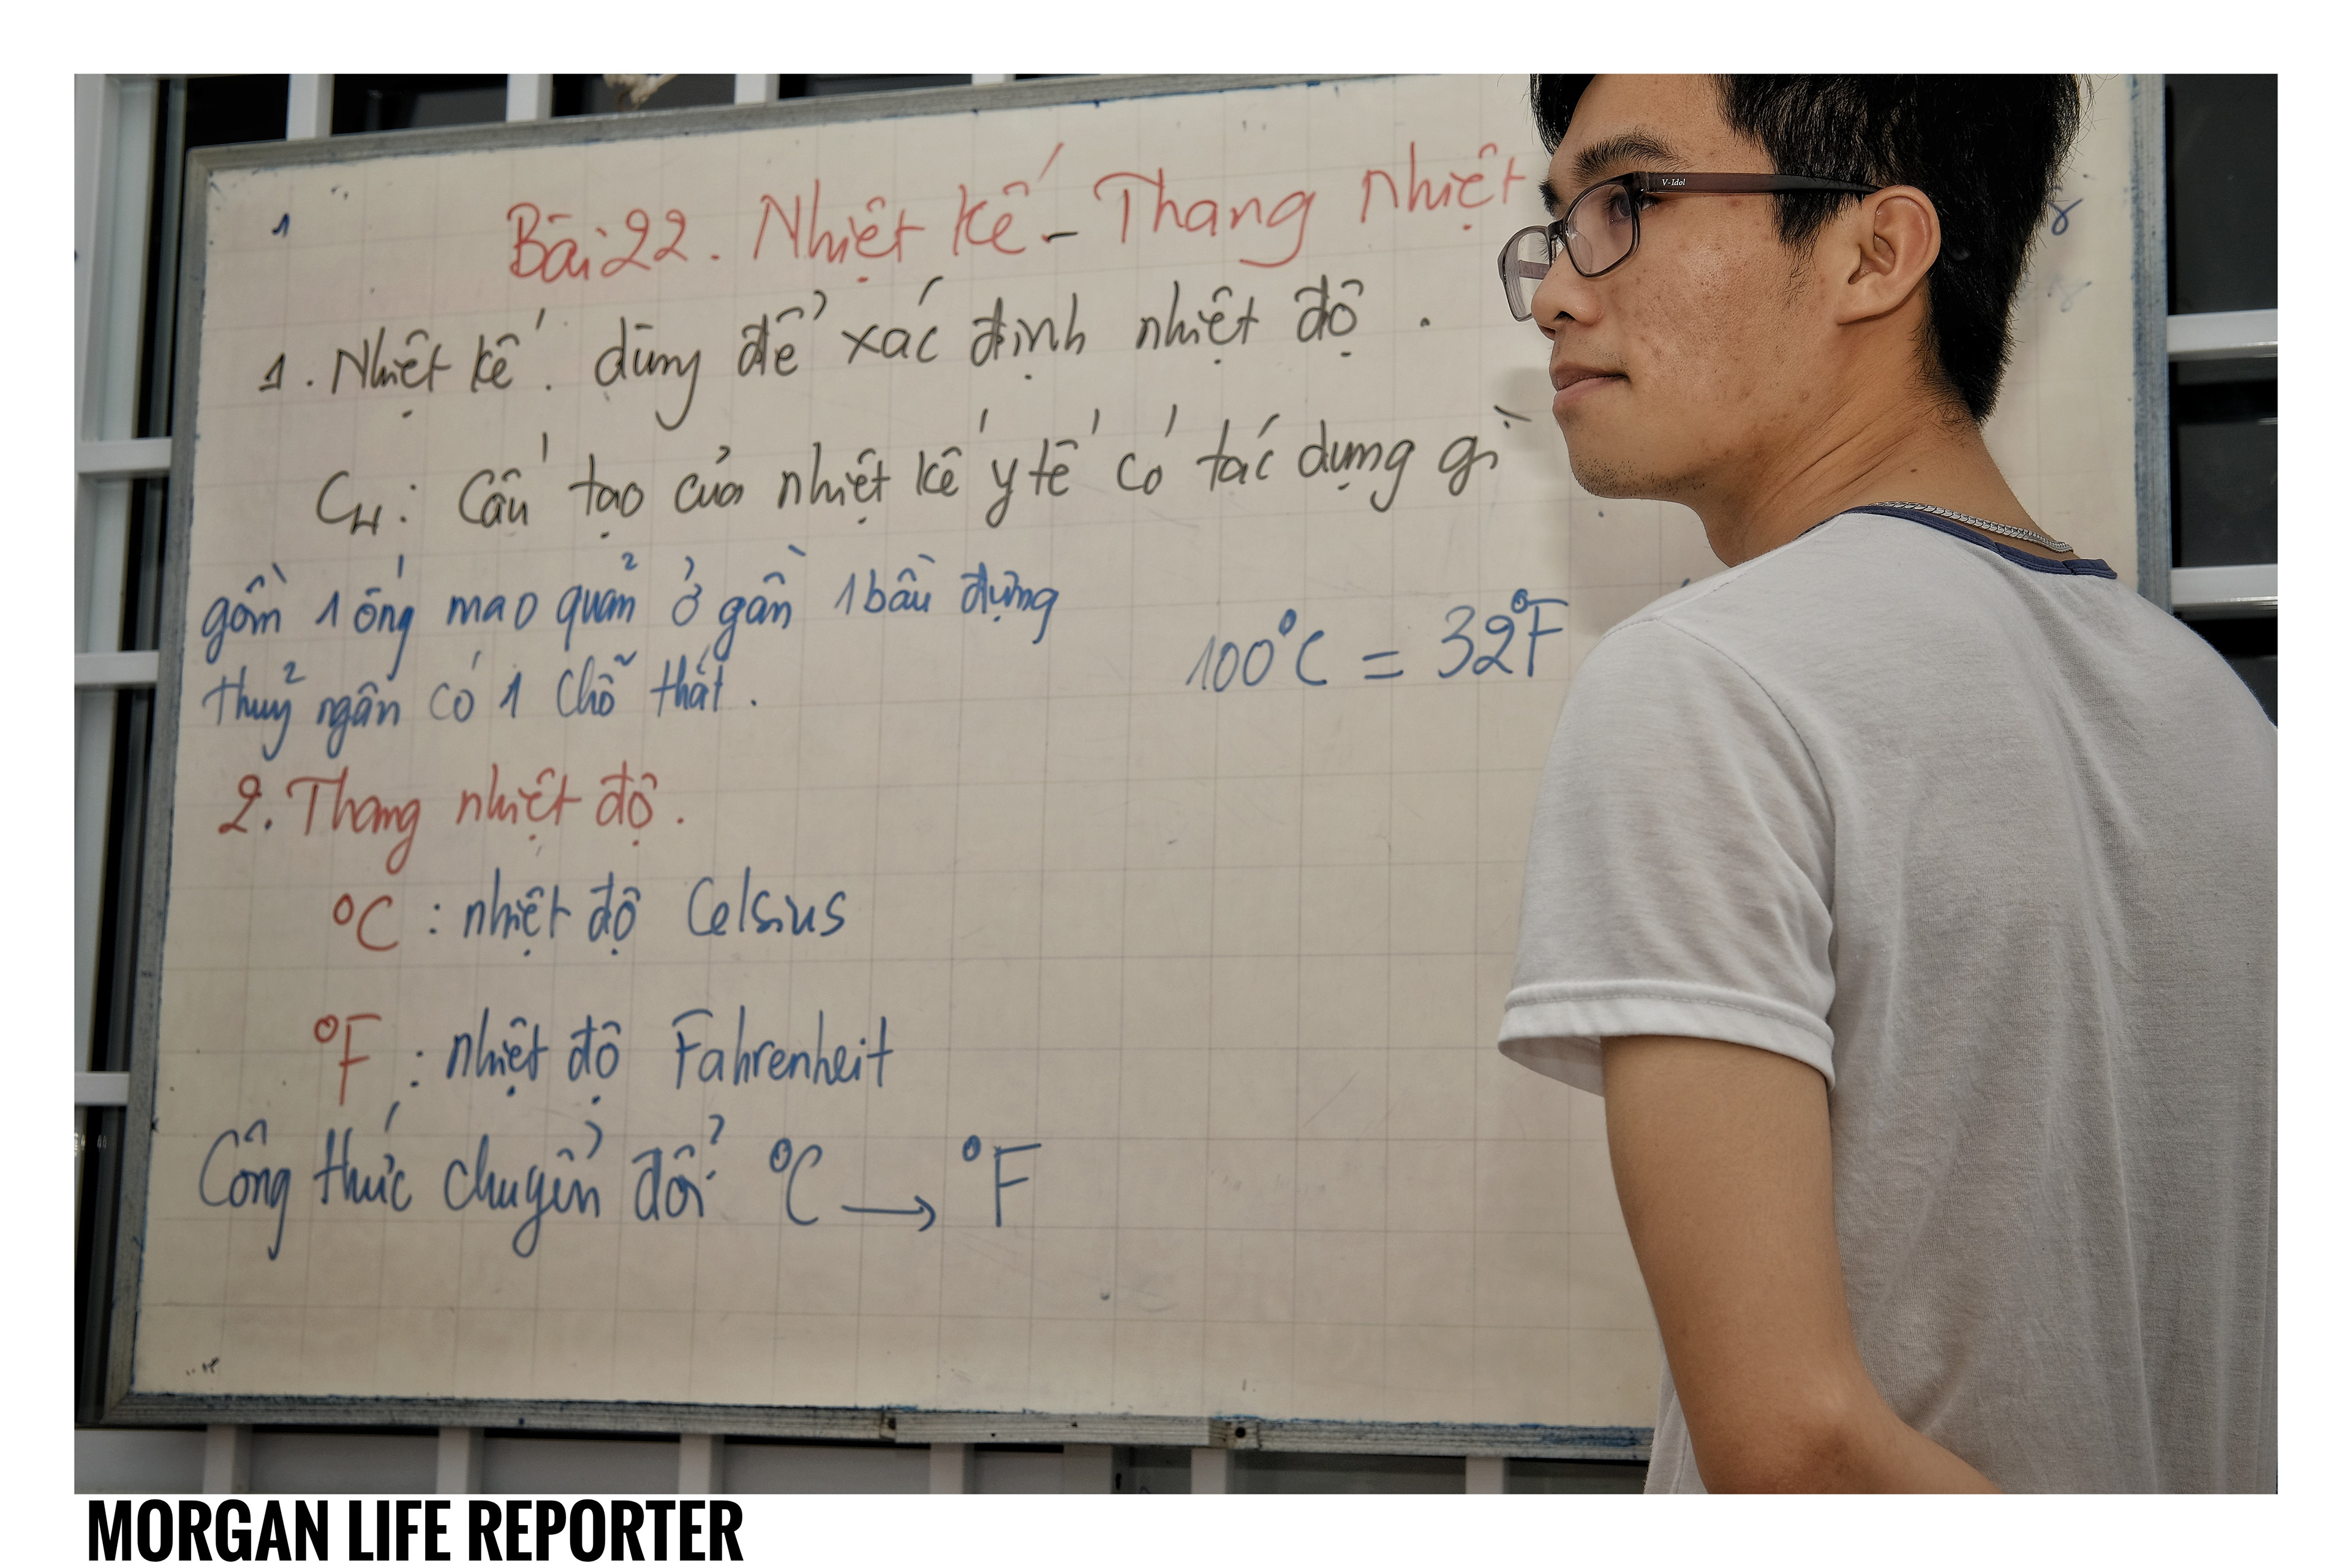 Bài 22. Nhiệt kế - Thang nhiệt
1. Nhiệt kế: dùng để xác định nhiệt độ.
C4: Cấu tạo của nhiệt kế y tế có tác dụng gì
gồm 1 ống mao quản ở gần 1 bầu đựng
thuỷ ngân có 1 chỗ thắt.
100°C = 32°F
2. Thang nhiệt độ.
°C : nhiệt độ Celsius
°F : nhiệt độ Fahrenheit
Công thức chuyển đổi °C → °F
V-Idol
MORGAN LIFE REPORTER